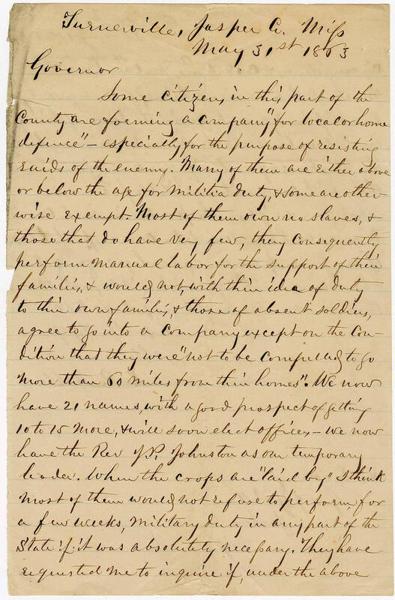 Turnerville, Jasper Co. Miss
May 31st 1863
Governor
Some citizens in this part of the
County are forming a Company "for local or home
defence" — especially for the purpose of resisting
raids of the enemy. Many of them are either above
or below the age for militia duty, & some are other
wise exempt. Most of them own no slaves, &
those that do have very few, they consequently
perform manual labor for the support of their
families, & would not, with their idea of duty
to their own families, & those of absent soldiers,
agree to go into a Company except on the Con-
dition that they were "not to be Compelled to go
more than 60 miles from their homes". We now
have 21 names, with a good prospect of getting
10 to 15 more, & will soon elect officers — we now
have the Rev J.P. Johnston as our temporary
leader. When the crops are "laid by" I think
most of them would not refuse to perform, for
a few weeks, military duty in any part of the
State if it was absolutely necessary. They have
requested me to inquire if, under the above